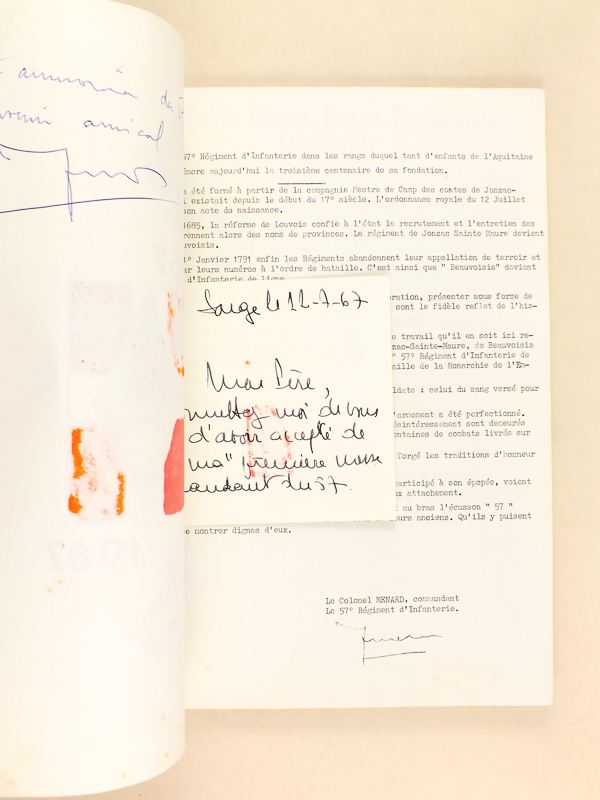 amical
57° Régiment d'Infanterie dans les rangs duquel tant d'enfants de l'Aquitaine
émore aujourd'hui le troisième centenaire de sa fondation.
a été formé à partir de la compagnie Mestre de Camp des comtes de Jonzac-
i existait depuis le début du 17° siècle. L'ordonnance royale du 12 Juillet
son acte de naissance.
1685, la réforme de Louvois confie à l'état le recrutement et l'entretien des
rennent alors des noms de provinces. Le régiment de Jonzac Sainte Maure devient
uvoisis.
1° Janvier 1791 enfin les Régiments abandonnent leur appellation de terroir et
ar leurs numéros à l'ordre de bataille. C'est ainsi que " Beauvoisis" devient
d'Infanterie de Ligne.
oration, présenter sous forme de
sont le fidèle reflet de l'his-
e travail qu'il en soit ici re-
zac-Sainte-Maure, de Beauvoisis
" 57° Régiment d'Infanterie de
aille de la Monarchie de l'Em-
ldats : celui du sang versé pour
l'armement a été perfectionné.
ésintéressement sont demeurés
ntaines de combats livrés sur
forgé les traditions d'honneur
participé à son épopée, voient
ux attachement.
au bras l'écusson " 57 "
urs anciens. Qu'ils y puisent
e montrer dignes d'eux.
le 12-7-67
Mon Père,
moi de vous
d'avoir accepté de
ma "première messe
du 57.
Le Colonel MENARD, commandant
Le 57° Régiment d'Infanterie.
1967